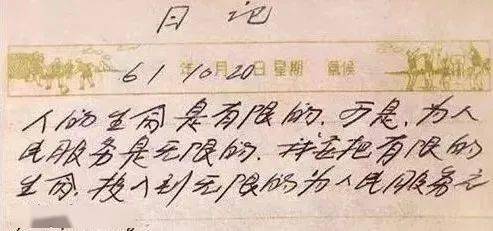 日记
61年10月20日星期 氣候
人的生命是有限的,可是,为人
民服务是无限的,我要把有限的
生命,投入到无限的为人民服务之